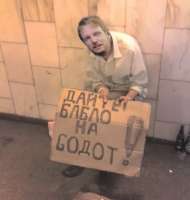 ДАЙТЕ
БАБЛО
НА
GОДОТ!